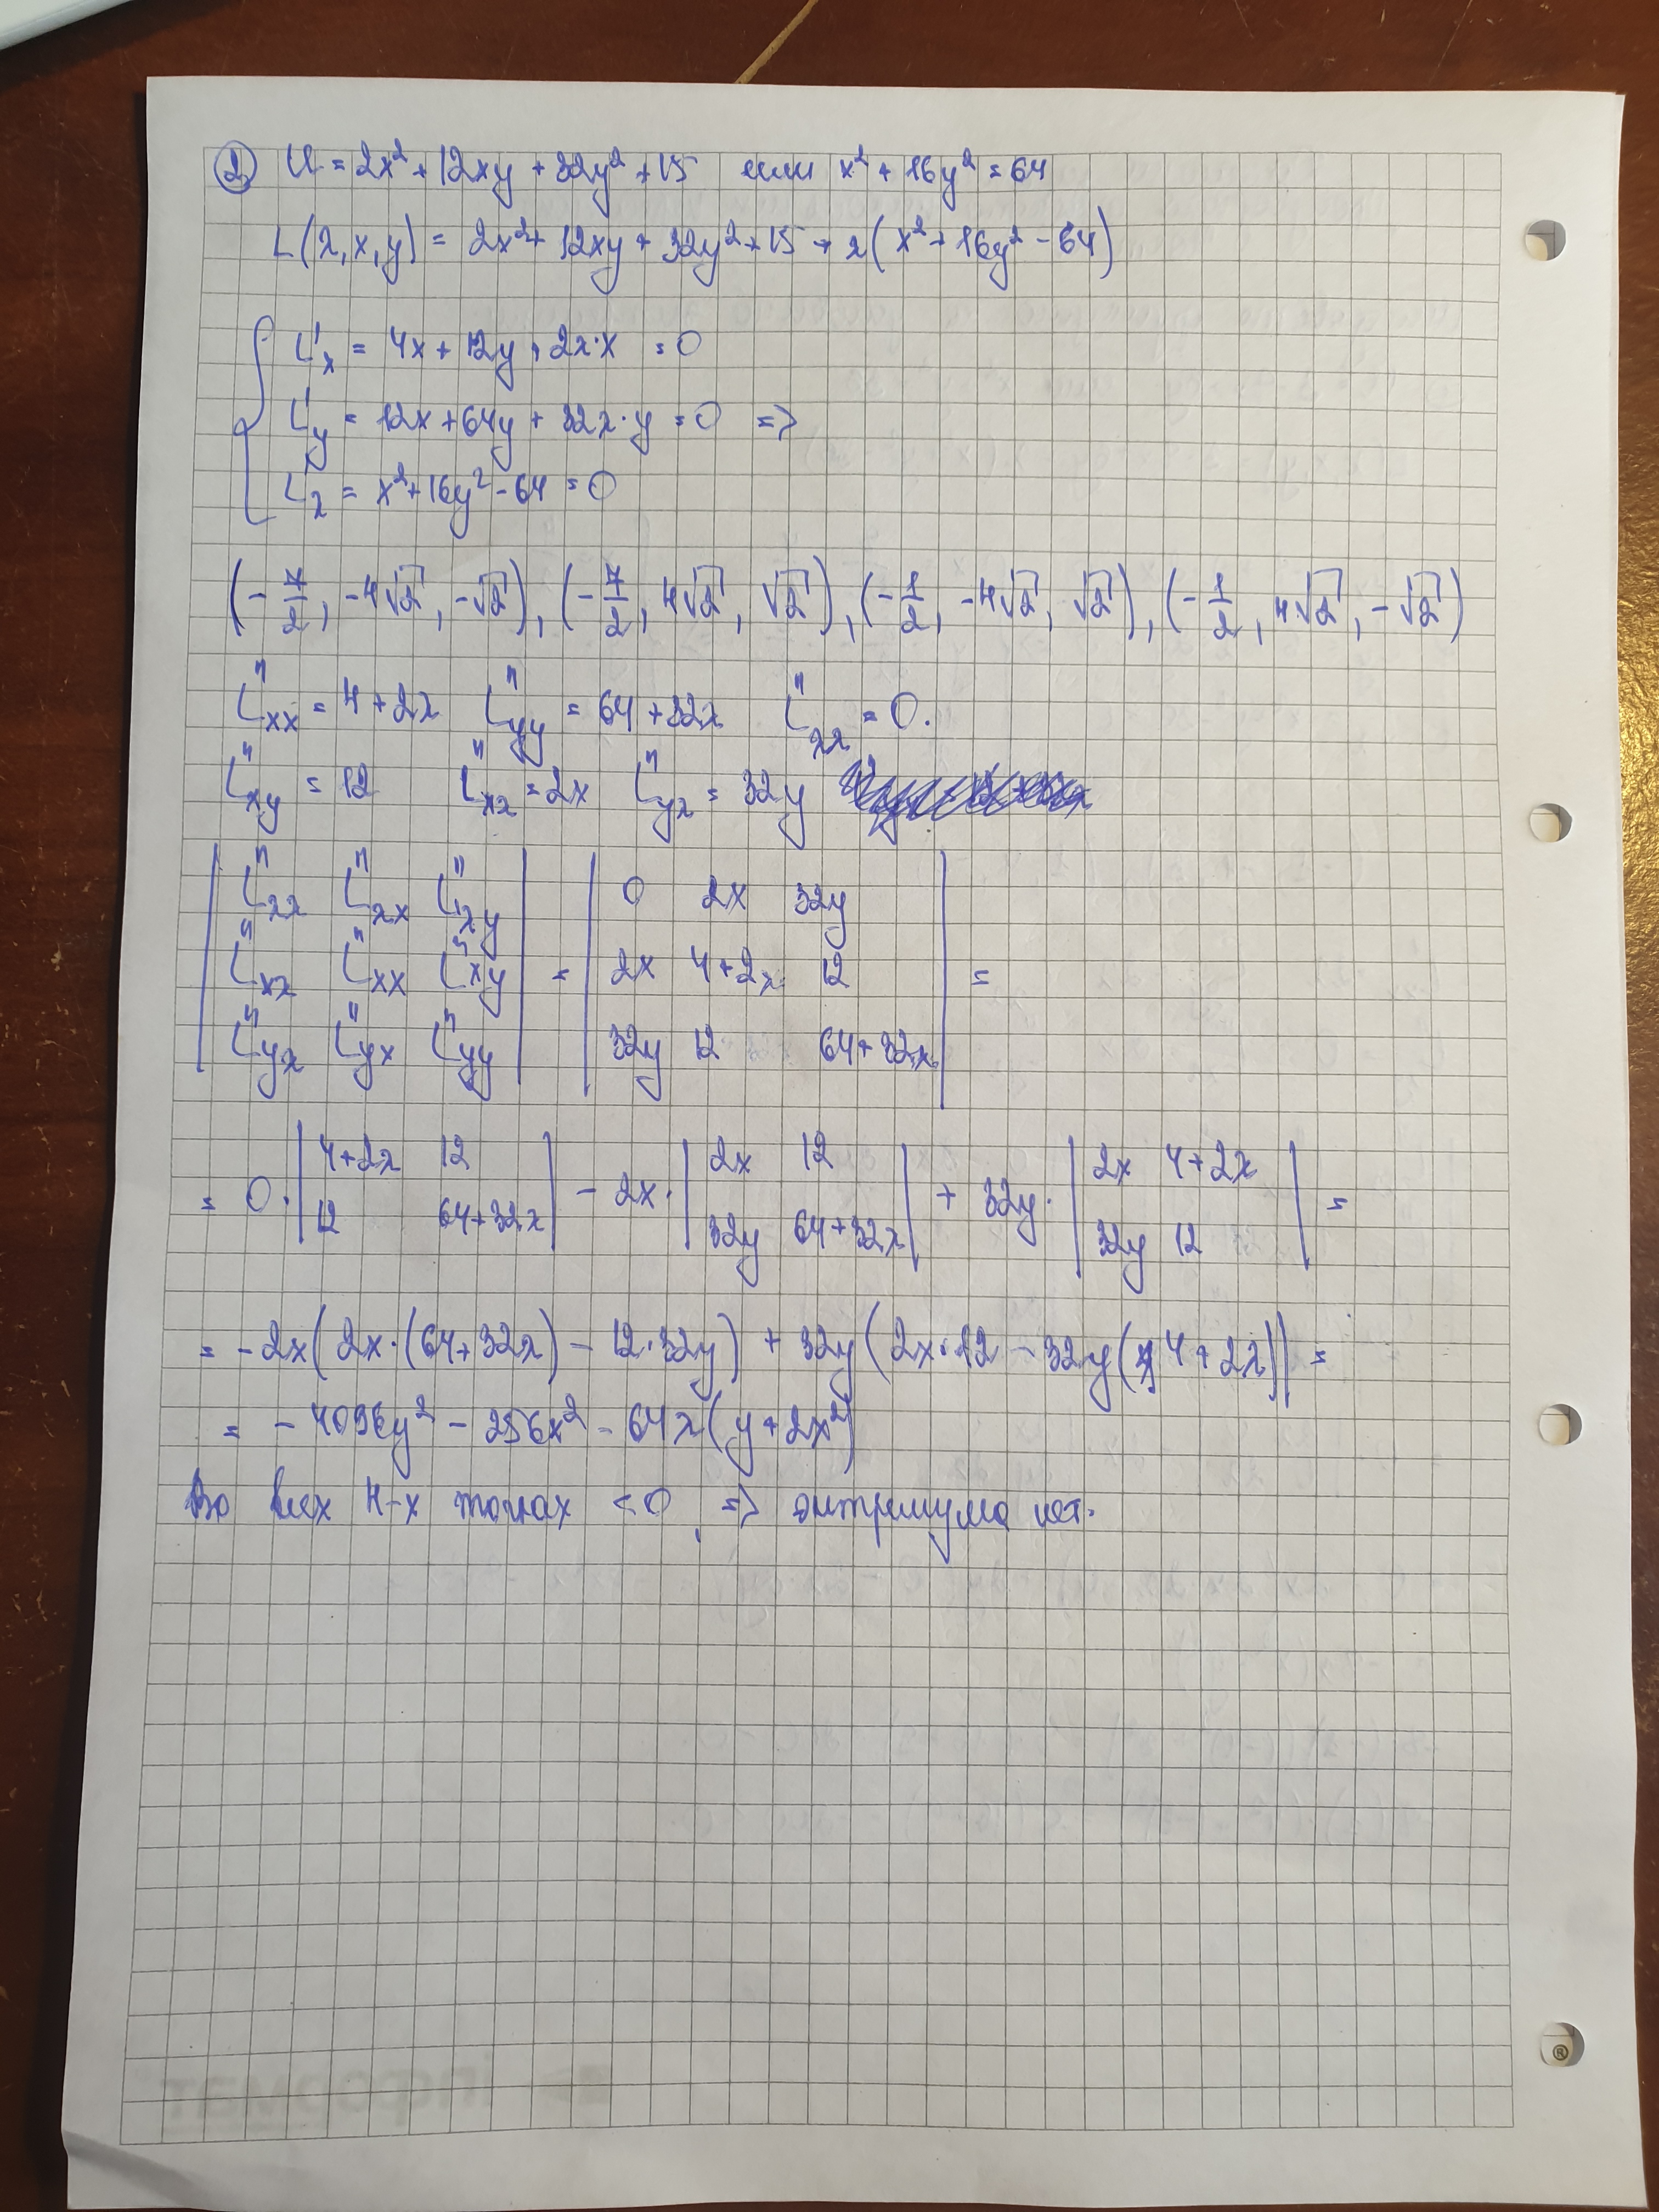 ② U = 2x² + 12xy + 32y² + 15 если x² + 16y² = 64
L(λ, x, y) = 2x² + 12xy + 32y² + 15 + λ(x² + 16y² - 64)
L'x = 4x + 12y + 2λ·x = 0
L'y = 12x + 64y + 32λ·y = 0 =>
L'λ = x² + 16y² - 64 = 0
(-7/2, -4√2, -√2), (-7/2, 4√2, √2), (-1/2, -4√2, √2), (-1/2, 4√2, -√2)
L''xx = 4 + 2λ L''yy = 64 + 32λ L''λλ = 0.
L''xy = 12 L''xλ = 2x L''yλ = 32y
| L''λλ L''λx L''λy | | 0 2x 32y |
| L''xλ L''xx L''xy | = | 2x 4+2λ 12 | =
| L''yλ L''yx L''yy | | 32y 12 64+32λ |
= 0· | 4+2λ 12 | - 2x· | 2x 12 | + 32y· | 2x 4+2λ | =
| 12 64+32λ | | 32y 64+32λ | | 32y 12 |
= -2x(2x·(64+32λ) - 12·32y) + 32y(2x·12 - 32y(4+2λ)) =
= -4096y² - 256x² - 64λ(y + 2x²)
Во всех 4-х точках < 0, => экстремума нет.
інформат
®